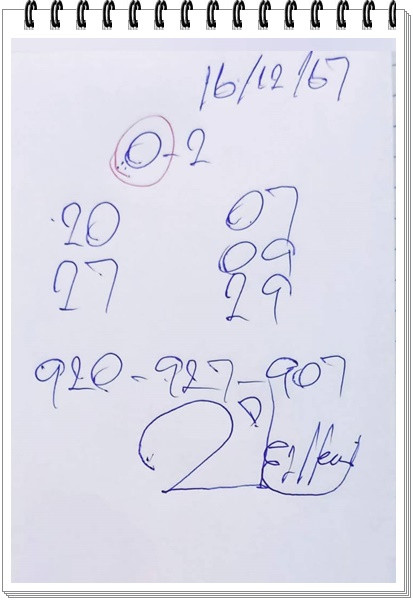 16/12/67
0-2
20 07
09
27 29
920-927-907
2